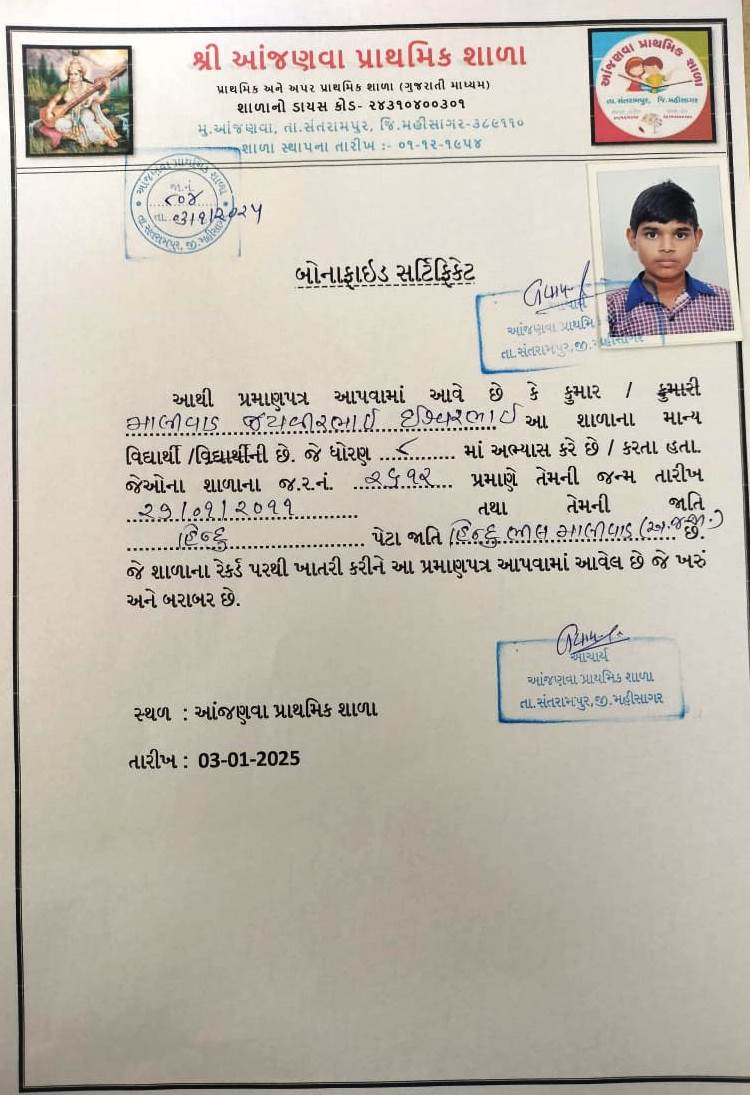 શ્રી આંજણવા પ્રાથમિક શાળા
પ્રાથમિક અને અપર પ્રાથમિક શાળા (ગુજરાતી માધ્યમ)
શાળાનો ડાયસ કોડ- ૨૪૩૧૦૪૦૦૩૦૧
મુ.આંજણવા, તા.સંતરામપુર, જિ.મહીસાગર-૩૮૯૧૧૦
શાળા સ્થાપના તારીખ :- ૦૧-૧૨-૧૯૫૪
આંજણવા પ્રાથમિક શાળા
તા.સંતરામપુર, જિ.મહીસાગર
આંજણવા પ્રાથમિક શાળા
જા.નં.
તા. ૦૩/૧/૨૦૨૫
તા.સંતરામપુર, જી.મહીસાગર
બોનાફાઇડ સર્ટિફિકેટ
આંજણવા પ્રાથમિ
તા.સંતરામપુર,જી.મહીસાગર
આથી પ્રમાણપત્ર આપવામાં આવે છે કે કુમાર / કુમારી
માલીવાડ જયવીરભાઈ ઈશ્વરભાઈ આ શાળાના માન્ય
વિદ્યાર્થી /વિદ્યાર્થીની છે. જે ધોરણ ૮ માં અભ્યાસ કરે છે / કરતા હતા.
જેઓના શાળાના જ.ર.નં. ૨૬૧૨ પ્રમાણે તેમની જન્મ તારીખ
૨૭/૦૧/૨૦૧૧ તથા તેમની જાતિ
હિન્દુ પેટા જાતિ હિન્દુ ભીલ માલીવાડ (અ.જ.જા.) છે.
જે શાળાના રેકર્ડ પરથી ખાતરી કરીને આ પ્રમાણપત્ર આપવામાં આવેલ છે જે ખરું
અને બરાબર છે.
આચાર્ય
આંજણવા પ્રાથમિક શાળા
તા.સંતરામપુર,જી.મહીસાગર
સ્થળ : આંજણવા પ્રાથમિક શાળા
તારીખ : 03-01-2025